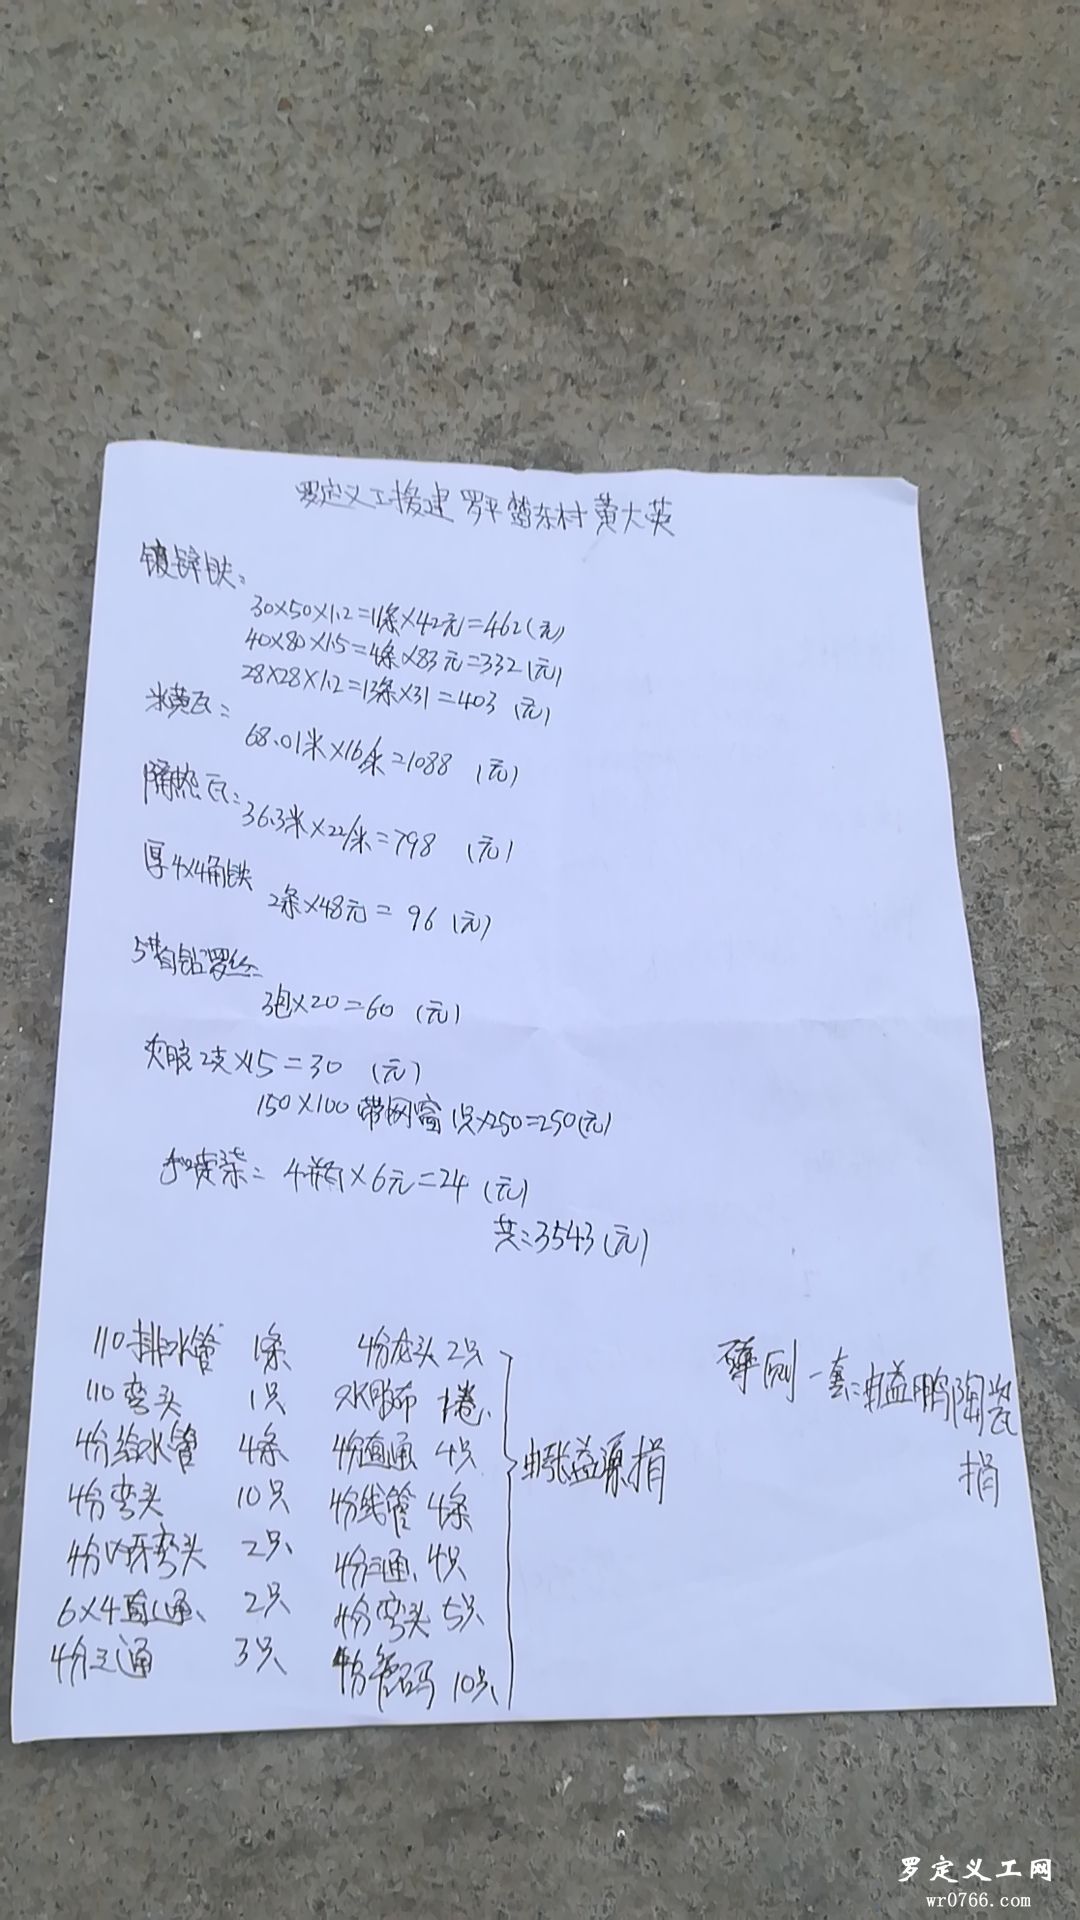 罗定义工援建 罗平 东村 黄大英
镀锌铁:
30×50×1.2=11条×42元=462(元)
40×80×1.5=4条×83元=332(元)
28×28×1.2=13条×31=403 (元)
米黄瓦:
68.01米×16/米=1088 (元)
隔热瓦:
36.3米×22/米=798 (元)
厚4×4角铁
2条×48元= 96 (元)
自钻罗丝:
3包×20=60 (元)
胶2支×15=30 (元)
150×100带网窗 1只×250=250(元)
喷柒: 4瓶×6元=24 (元)
共:3543(元)
110排水管 1条
110弯头 1只
4分给水管 4条
4分弯头 10只
4分内牙弯头 2只
6×4直通 2只
4分三通 3只
4分龙头 2只
水胶布 1卷
4分直通 4只
4分线管 4条
4分三通 4只
4分弯头 5只
4分管码 10只
由张益源捐
一套:由益鹏陶瓷
捐
罗定义工网
wr0766.com